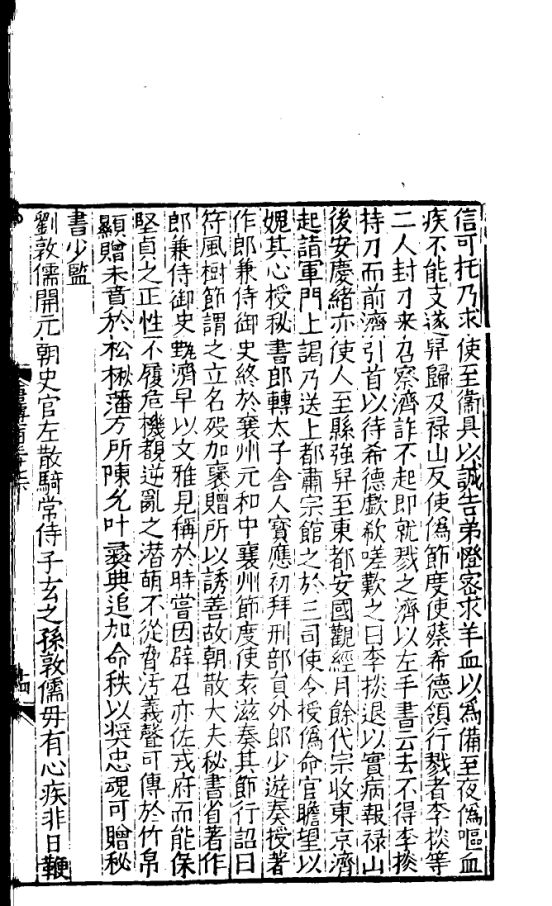 信可托乃求使至衞具以誠告弟憕密求羊血以爲備至夜僞嘔血
疾不能支遂舁歸及禄山反使僞節度使蔡希德領行戮者李掞等
二人封刀来召察濟詐不起即就戮之濟以左手書云去不得李掞
持刀而前濟引首以待希德歔欷嗟歎之曰李掞退以實病報禄山
後安慶緒亦使人至縣強舁至東都安國觀經月餘代宗收東京濟
起詣軍門上謁乃送上都肅宗館之於三司使令授僞命官瞻望以
媿其心授秘書郎轉太子舍人寳應初拜刑部員外郎少遊奏授著
作郎兼侍御史終於襄州元和中襄州節度使袁滋奏其節行詔曰
符風樹節謂之立名殁加襃贈所以誘善故朝散大夫秘書省著作
郎兼侍御史甄濟早以文雅見稱於時嘗因辟召亦佐戎府而能保
堅貞之正性不履危機覩逆亂之潜萌不從脅汚義聲可傳於竹帛
顯贈未賁於松楸藩方所陳允叶彞典追加命秩以奬忠魂可贈秘
書少監
劉敦儒開元朝史官左散騎常侍子玄之孫敦儒毋有心疾非日鞭